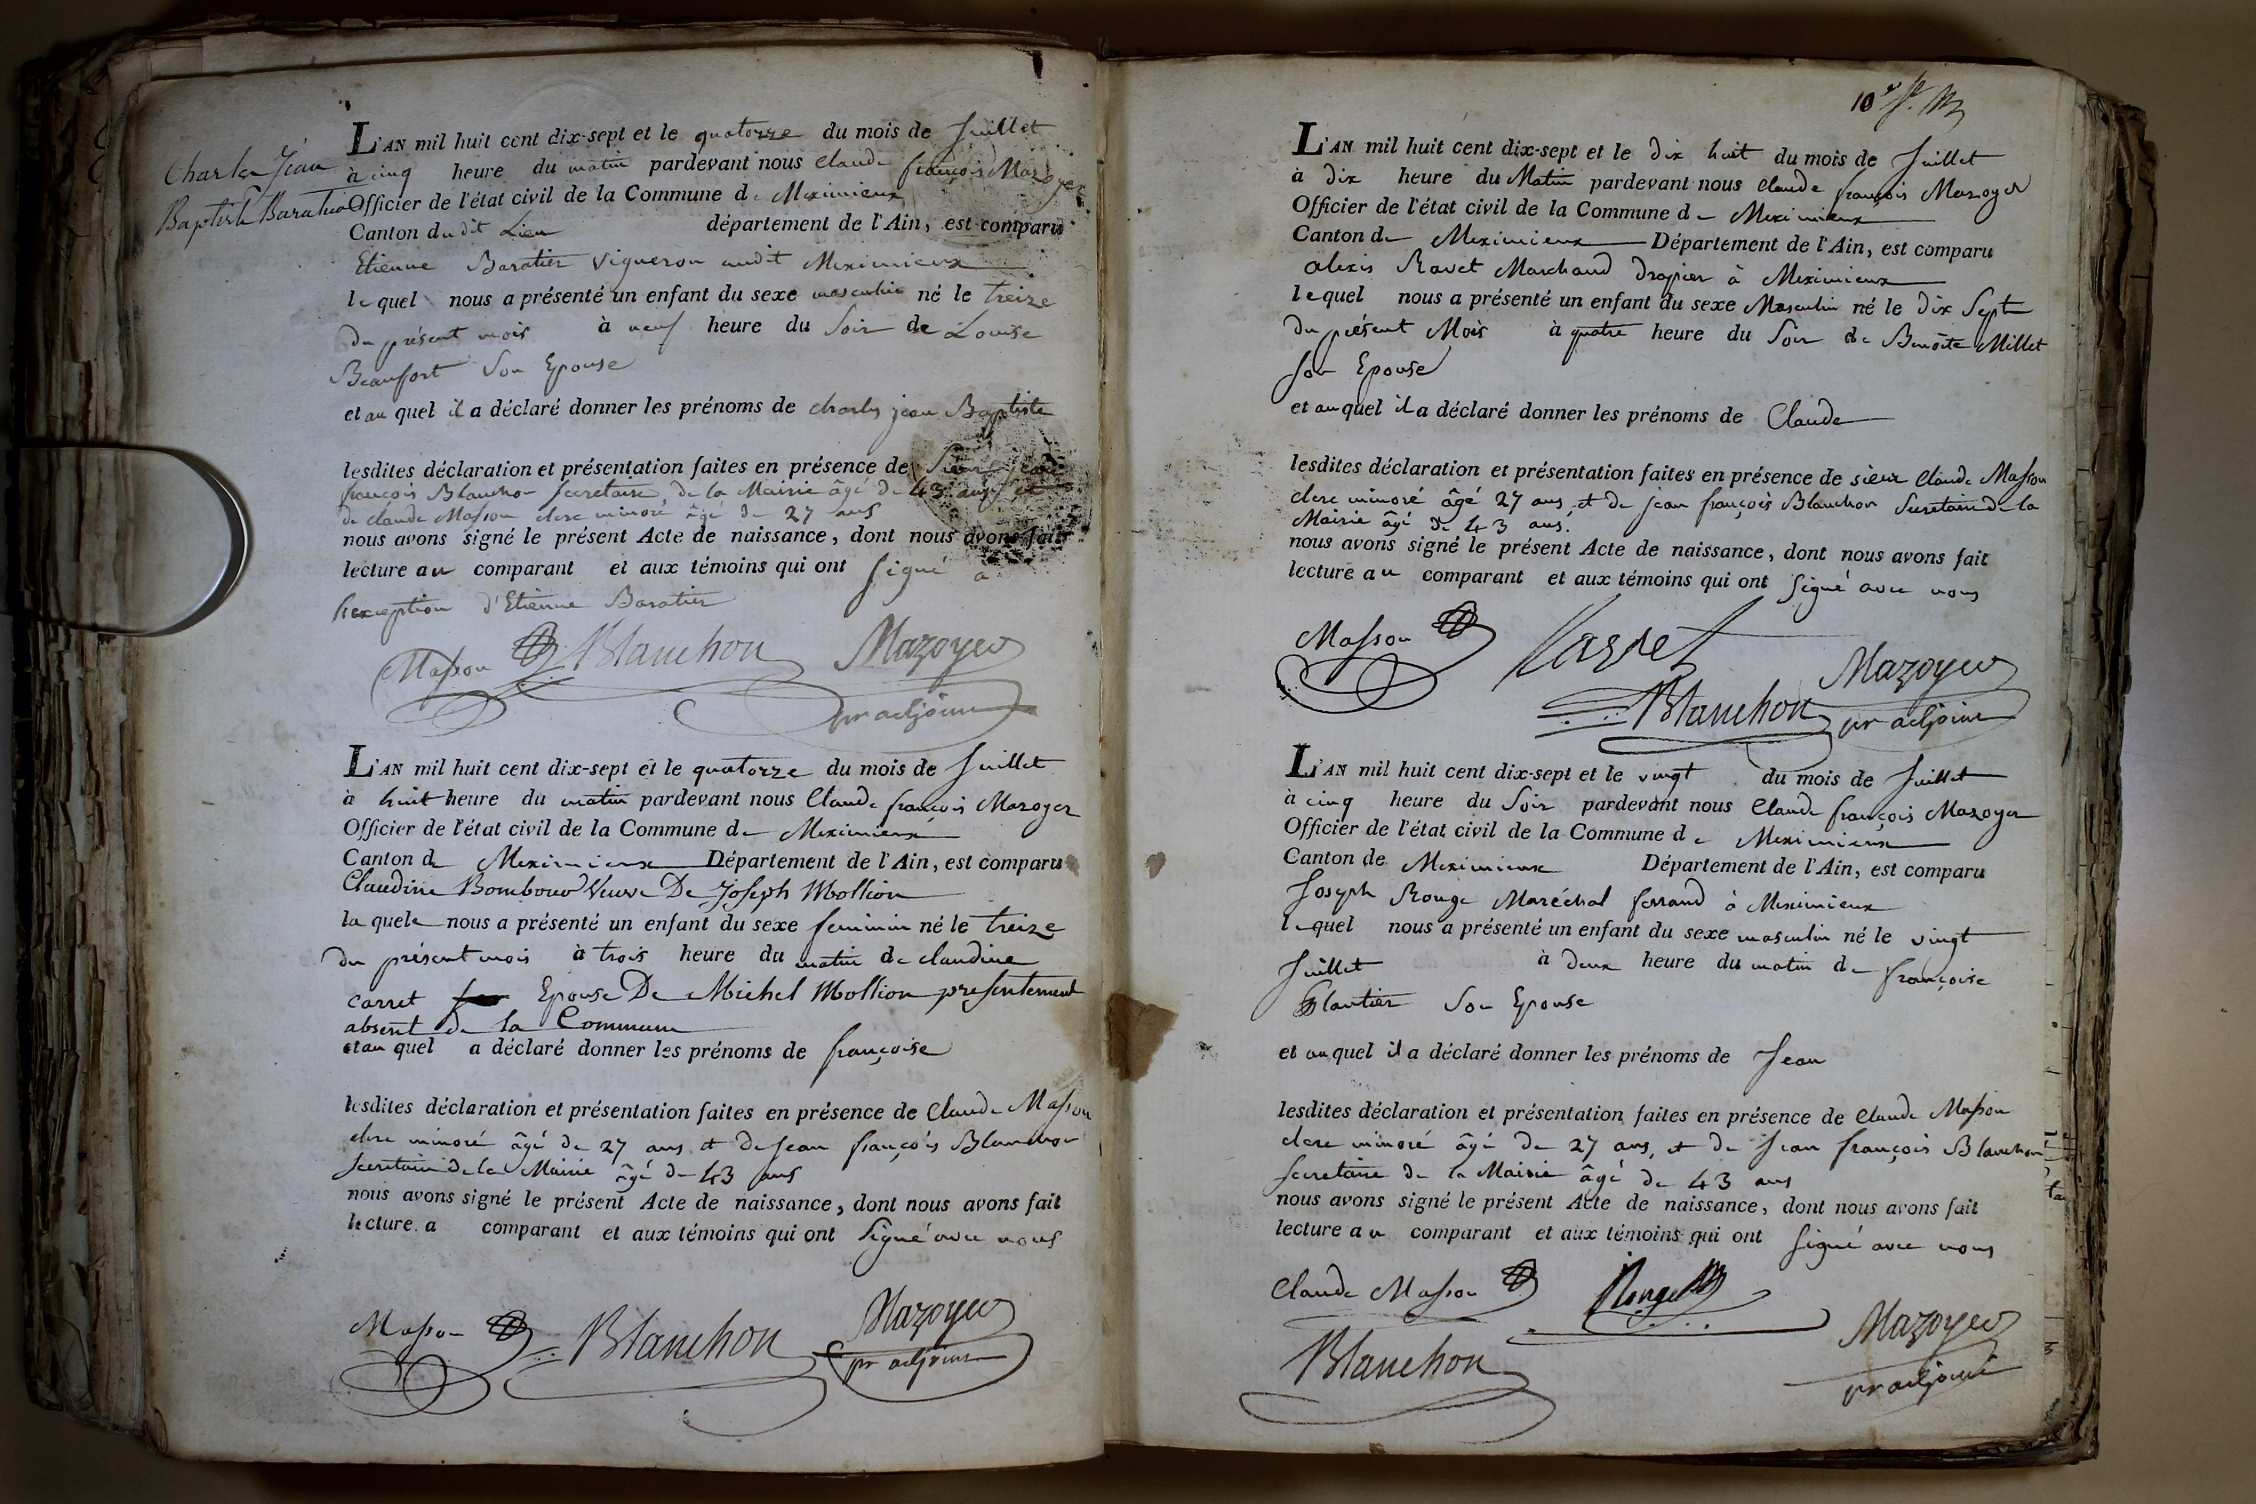 Charles Jean
Baptiste Baratier
L'AN mil huit cent dix-sept et le quatorze du mois de Juillet
à cinq heure du matin pardevant nous Claude françois Mazoyer
Officier de l'état civil de la Commune de Meximieux
Canton dudit Lieu département de l'Ain, est comparu
Etienne Baratier vigneron audit Meximieux
lequel nous a présenté un enfant du sexe masculin né le treize
du présent mois à neuf heure du Soir de Louise
Beaufort Son Epouse
et au quel il a déclaré donner les prénoms de charles jean Baptiste
lesdites déclaration et présentation faites en présence de Sieur jean
françois Blanchon Secretaire de la Mairie âgé de 43 ans et
de claude Masson clerc minoré âgé de 27 ans
nous avons signé le présent Acte de naissance, dont nous avons fait
lecture au comparant et aux témoins qui ont Signé a
l'exception d'Etienne Baratier
Masson Blanchon Mazoyer
pr adjoint
L'AN mil huit cent dix-sept et le quatorze du mois de Juillet
à huit heure du matin pardevant nous Claude françois Mazoyer
Officier de l'état civil de la Commune de Meximieux
Canton de Meximieux Département de l'Ain, est comparu
Claudine Veuve De Joseph Mollion
la quele nous a présenté un enfant du sexe feminin né le treize
du présent mois à trois heure du matin de claudine
carret Epouse De Michel Mollion presentement
absent de la Commune
et au quel a déclaré donner les prénoms de françoise
lesdites déclaration et présentation faites en présence de Claude Masson
clerc minoré âgé de 27 ans et de Jean françois Blanchon
Secretaire de la Mairie âgé de 43 ans
nous avons signé le présent Acte de naissance, dont nous avons fait
lecture a comparant et aux témoins qui ont Signé avec nous
Masson Blanchon Mazoyer
pr adjoint
10e
L'AN mil huit cent dix-sept et le dix huit du mois de Juillet
à dix heure du Matin pardevant nous Claude françois Mazoyer
Officier de l'état civil de la Commune de Meximieux
Canton de Meximieux Département de l'Ain, est comparu
alexis Ravet Marchand Drapier à Meximieux
lequel nous a présenté un enfant du sexe Masculin né le dix Sept
du présent Mois à quatre heure du Soir de Benoîte Millet
son Epouse
et au quel il a déclaré donner les prénoms de Claude
lesdites déclaration et présentation faites en présence de sieur Claude Masson
clerc minoré âgé 27 ans, et de jean françois Blanchon Secretaire de la
Mairie âgé de 43 ans.
nous avons signé le présent Acte de naissance, dont nous avons fait
lecture au comparant et aux témoins qui ont Signé avec nous
Masson Mazoyer
Blanchon pr adjoint
L'AN mil huit cent dix-sept et le vingt du mois de Juillet
à cinq heure du Soir pardevant nous Claude françois Mazoyer
Officier de l'état civil de la Commune de Meximieux
Canton de Meximieux Département de l'Ain, est comparu
Joseph Rouge Maréchal ferrand à Meximieux
lequel nous a présenté un enfant du sexe masculin né le vingt
Juillet à deux heure du matin de françoise
Plantier Son Epouse
et au quel il a déclaré donner les prénoms de Jean
lesdites déclaration et présentation faites en présence de Claude Masson
clerc minoré âgé de 27 ans, et de Jean françois Blanchon
Secretaire de la Mairie âgé de 43 ans
nous avons signé le présent Acte de naissance, dont nous avons fait
lecture au comparant et aux témoins qui ont Signé avec nous
Claude Masson Rouge
Blanchon Mazoyer
pr adjoint